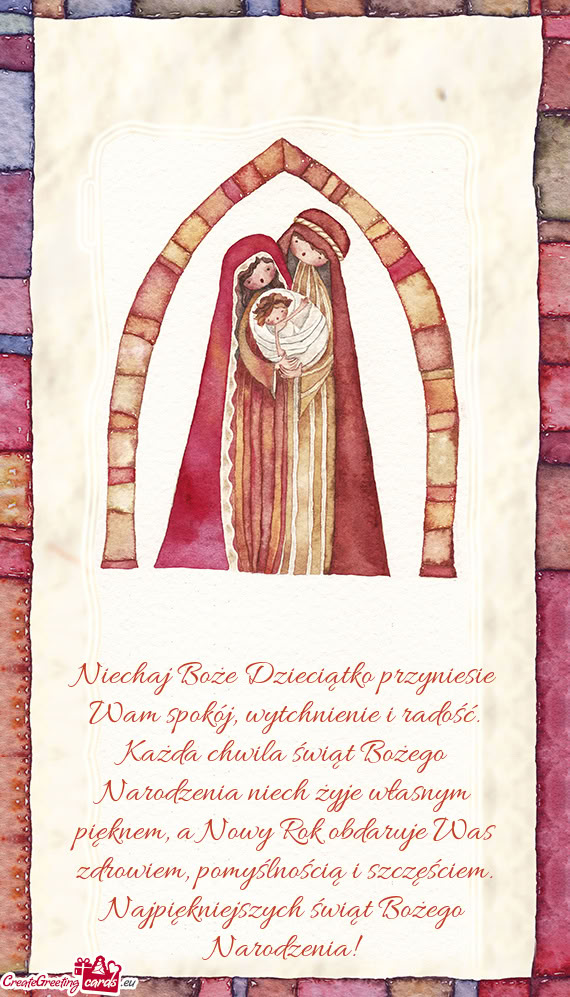 Niechaj Boże Dzieciątko przyniesie
Wam spokój, wytchnienie i radość.
Każda chwila świąt Bożego
Narodzenia niech żyje własnym
pięknem, a Nowy Rok obdaruje Was
zdrowiem, pomyślnością i szczęściem.
Najpiękniejszych świąt Bożego
Narodzenia!
CreateGreeting cards .eu